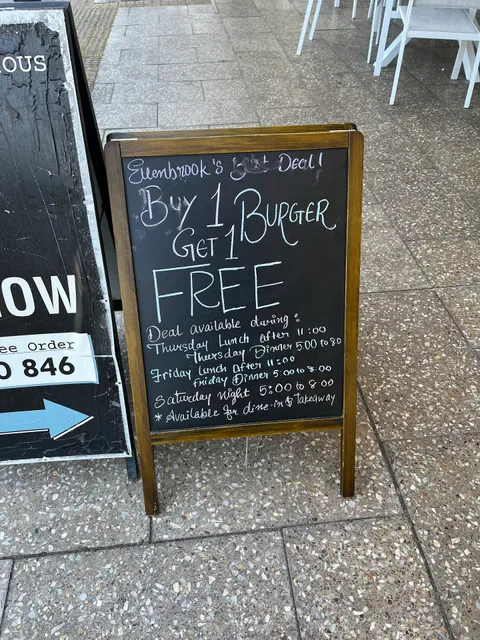 OUS
OW
ee Order
0 846
Ellenbrook's Best Deal!
Buy 1
Get 1
BURGER
FREE
Deal available during:
Thursday Lunch after 11:00
Thursday Dinner 5:00 to 80
Friday Lunch after 11:00
friday Dinner 5:00 to 8:00
Saturday night 5:00 to 8 00
* Available for dine-in & Takeaway